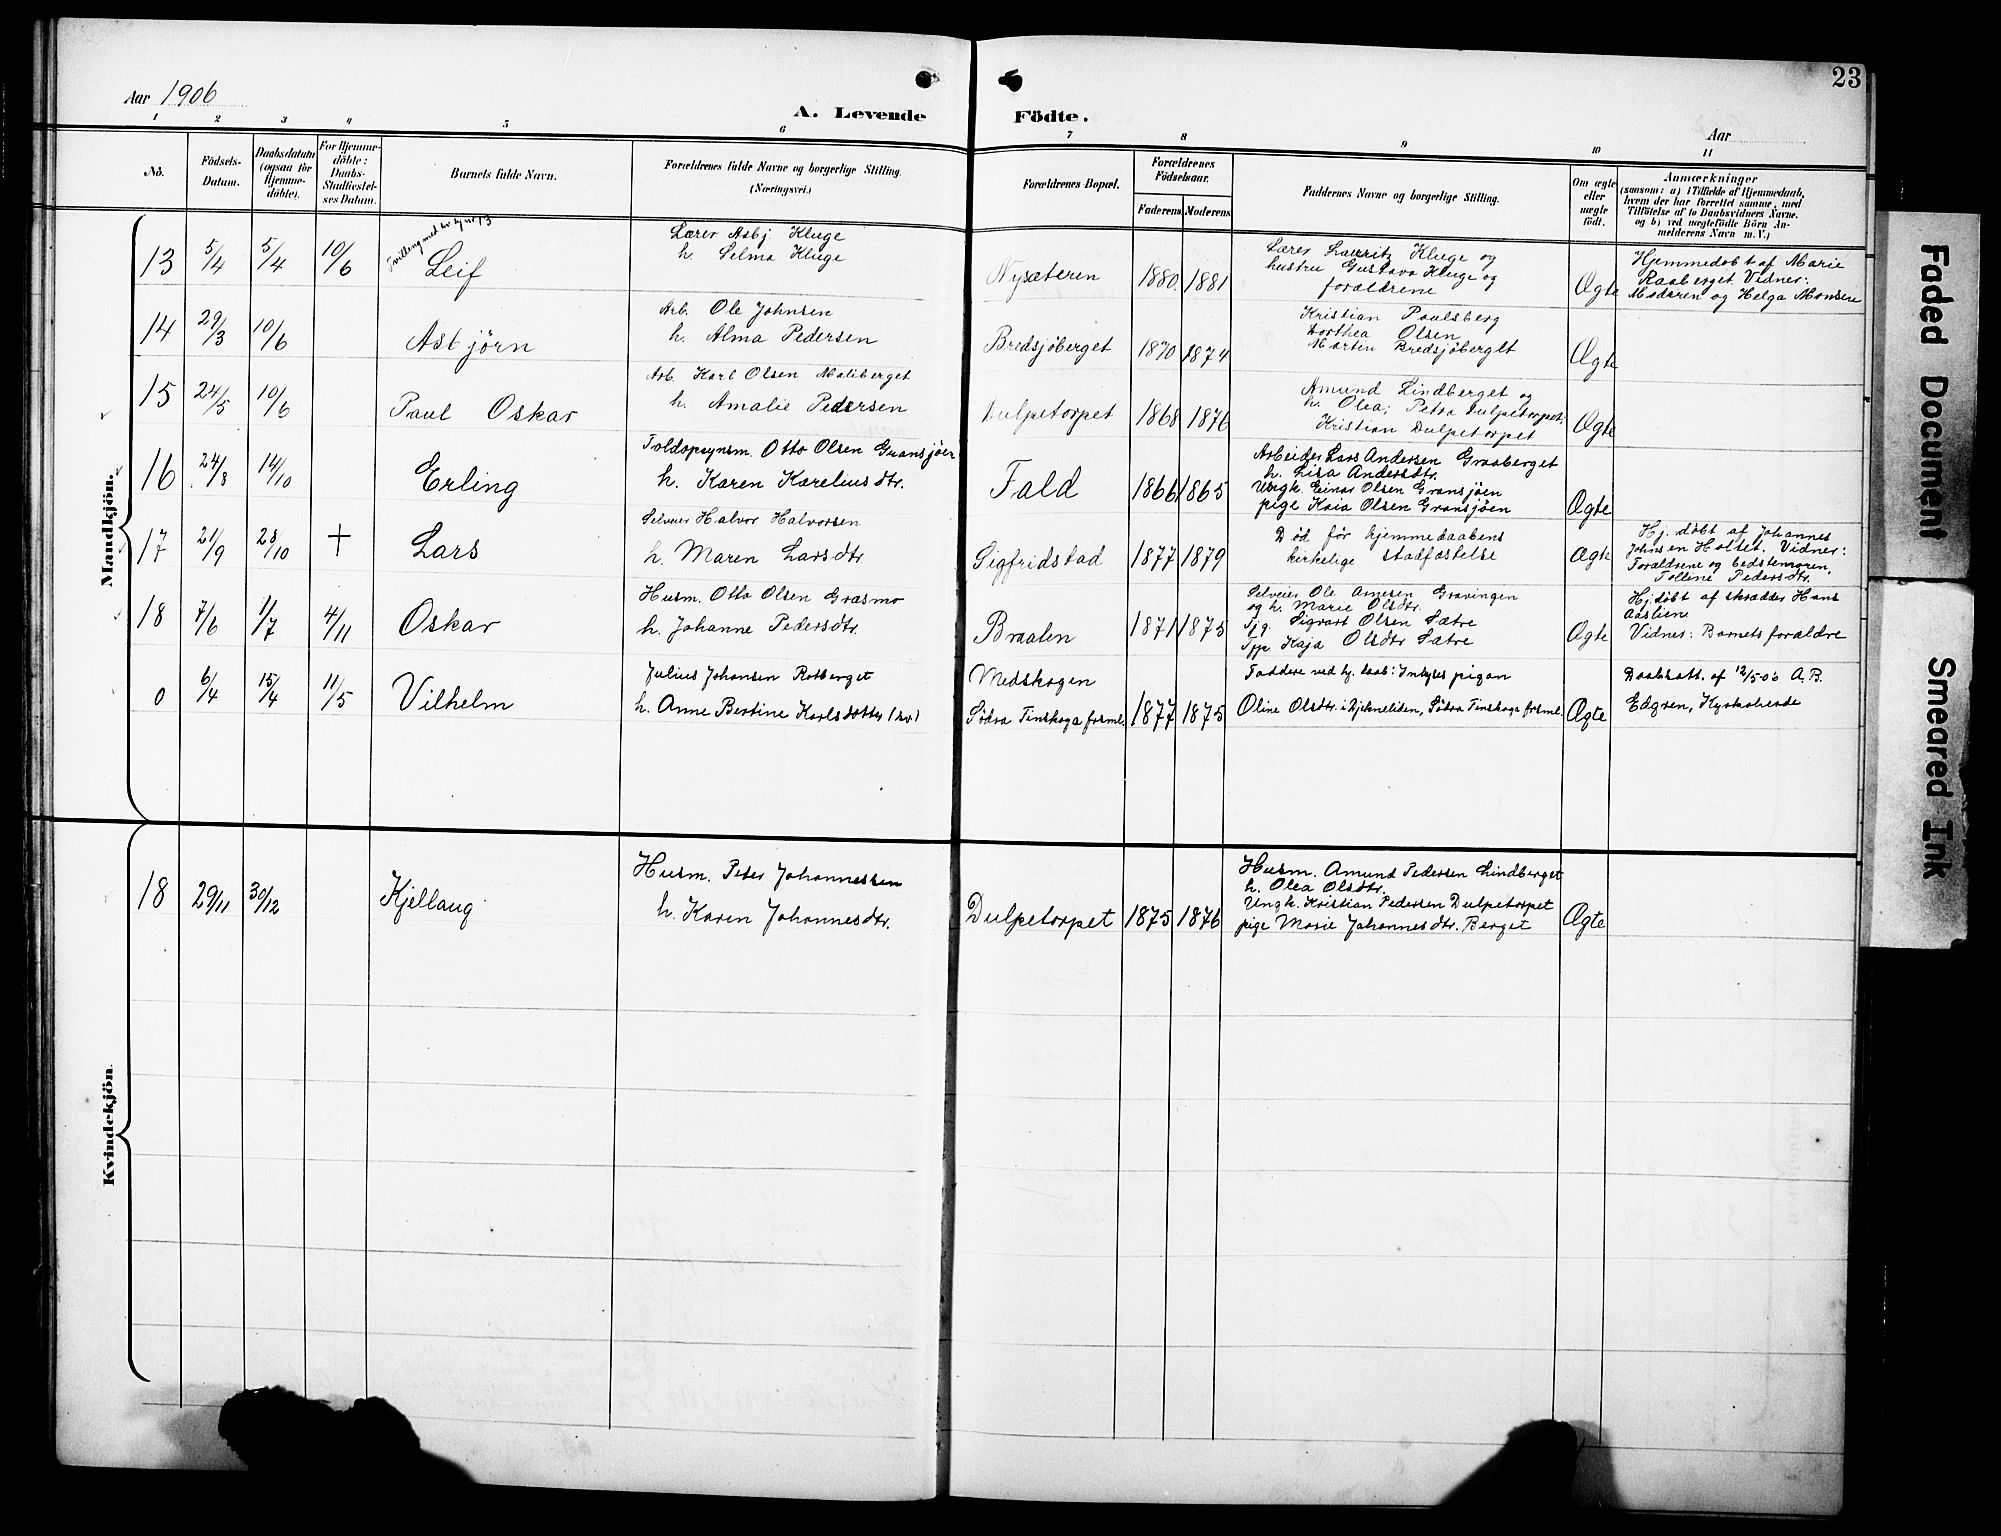 23
Aar 1906
A. Levende Födte.
Aar
1 2 3 4 5 6 7 8 9 10 11
No.
Födsels-Datum.
Daabsdatum (ogsaa for Hjemme-döbte).
For Hjemme-döbte: Daabs-Stadfæstel-ses Datum.
Barnets fulde Navn.
Forældrenes fulde Navne og borgerlige Stilling.
(Næringsvei.)
Forældrenes Bopæl.
Forældrenes Födselsaar.
Faderens Moderens
Faddernes Navne og borgerlige Stilling.
Om ægte eller uægte født.
Anmærkninger
(saasom: a) i Tilfælde af Hjemmedaab,
hvem der har forrettet samme, med
Tilföielse af to Daabsvidners Navne.
og b) ved uægtefödte Börn An-
melderens Navn m. V.)
Mandkjön.
13 5/4 5/4 10/6 Tvilling med kv. kj no 13
Leif
Lærer Asbj Kluge
h. Selma Kluge
Nysæteren 1880. 1881
Lærer Lauritz Kluge og
hustru Gustava Kluge og
forældrene
Ægte
Hjemmedøbt af Marie
Raaberget Vidner:
Moderen og Helga Monsene
14 29/3 10/6 Asbjørn
Arb. Ole Johnsen
h. Alma Pedersen
Bredsjøberget 1870 1874
Kristian Paulsberg
Dorthea Olsen
Martin Bredsjøberget
Ægte
15 24/5 10/6 Paul Oskar
Arb. Karl Olsen Maliberget
h. Amalie Pedersen
Dulpetorpet 1868 1876
Amund Lindberget og
h. Olea; Petra Dulpetorpet,
Kristian Dulpetorpet
Ægte
16 24/8 14/10 Erling
Toldopsynsm. Otto Olsen Gransjøen
h. Karen Kareliusdtr.
Fald 1866 1865
Arbeider Lars Andersen Graaberget
h. Lisa Andersdtr.
Ungk. Einar Olsen Gransjøen
pige Kaia Olsen Gransjøen
Ægte
17 21/9 28/10 + Lars
Selveier Halvor Halvorsen
h. Maren Larsdtr.
Sigfridstad 1877 1879
Død før hjemmedaabens
kirkelige stadfæstelse
Ægte
Hj. døbt af Johannes
Johnsen Holtet. Vidner:
Forældrene og bedstemoren,
Tolline Pedersdtr.
18 7/6 1/7 4/11 Oskar
Husm. Otto Olsen Grasmo
h. Johanne Pedersdtr.
Braaten 1871 1875
Selveier Ole Arnesen Gravingen
og h. Marie Olsdtr.
Tjg. Sigvart Olsen Sætre
Tjp. Kaja Olsdtr Sætre
Ægte
Hj. døbt af skrædder Hans
Aaslien
Vidner: Barnets forældre
0 6/4 15/4 11/5 Vilhelm
Julius Johansen Rotberget
h. Anne Bertine Karlsdotter (kv)
Medskogen
Södra Finskoga forsml. 1877 1875
Faddere ved hj. daab:
Oline Olsdtr. i Södra Finskoga forsml.
Ægte
Daabsatt. af 12/5 06 A. B.
Edgren, Kyrkoherde
Kvindekjön.
18 29/11 30/12 Kjellaug
Husm. Peder Johannessen
h. Karen Johannesdtr.
Dulpetorpet 1875 1876
Husm. Amund Pedersen Lindberget
h. Olea Olsdtr.
Ungk. Kristian Pedersen Dulpetorpet
pige Marie Johannesdtr. Berget
Ægte
Faded Document
Smeared Ink